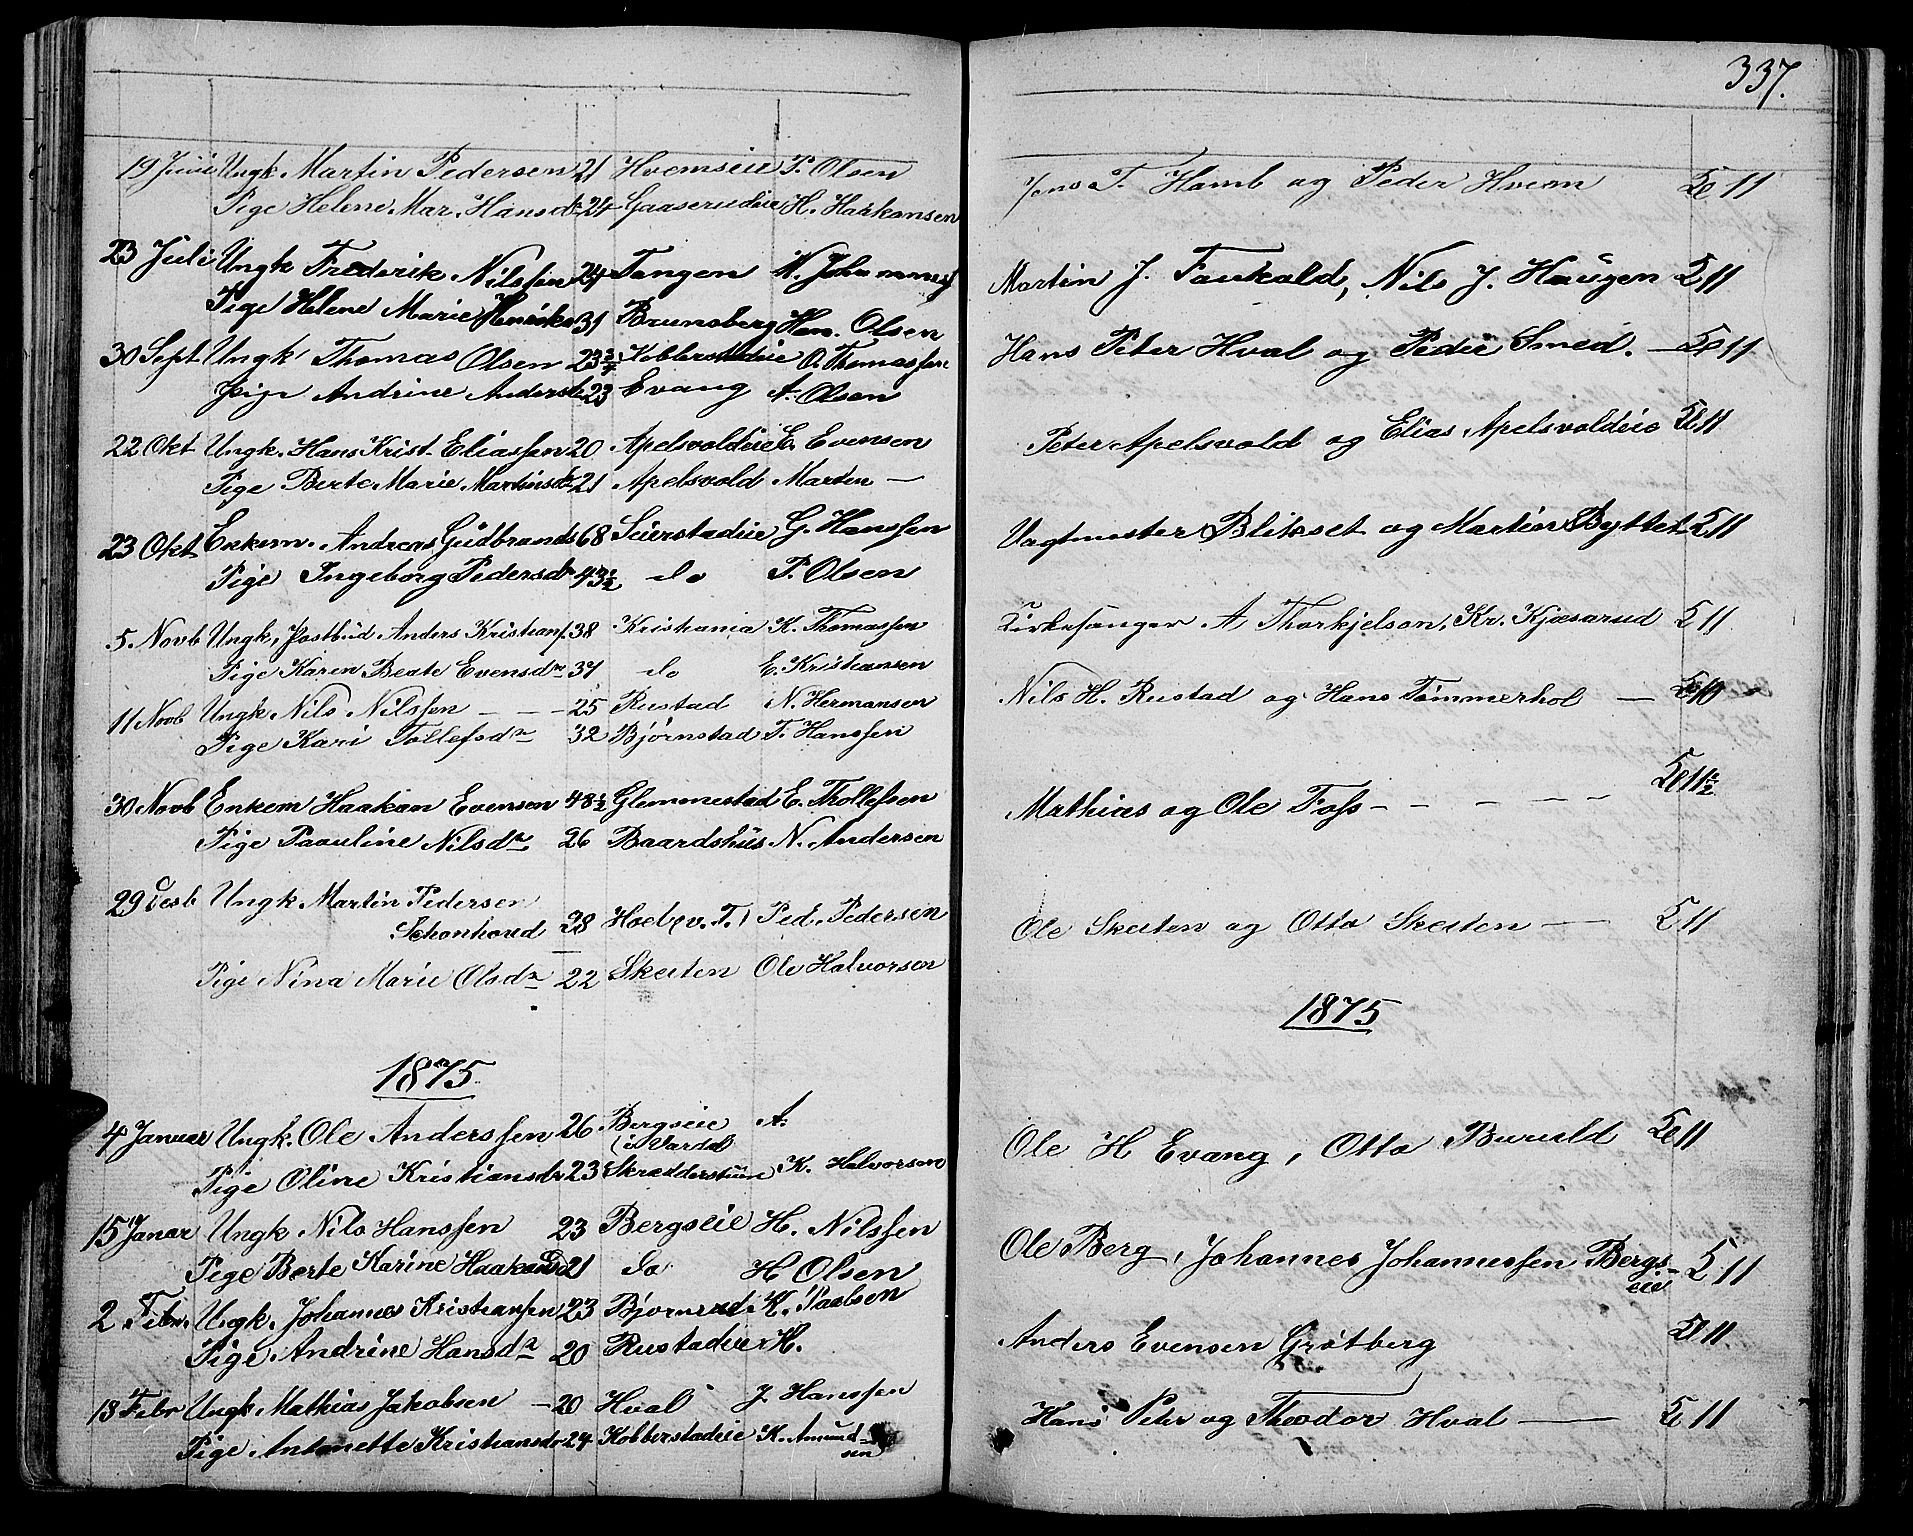 337.
19 Juni Ungk. Martin Pedersen 21 Hvemseie P. Olsen
Pige Helene Mar. Hansdr 24 Gaaserudeie H. Haakansen
23 Juli Ungk Frederik Nilssen 24 Tangen N.
Pige Helene Marie Henriks 31 Brunsberg Han. Olsen
30 Sept. Ungk Thomas Olsen 23 3/4 Kobberstadeie O. Thomassen
Pige Andrine Andersdr 23 Evang A. Olsen
22 Okt Ungk. Hans Krist. Eliassen 20 Apelsvoldeie E. Evensen
Pige Berte Marie Martinsdr 21 Apelsvold Marten —
23 Okt Enkem. Andreas Gudbrands 68 Seierstadeie G. Hanssen
Pige Ingeborg Pedersdr 43 1/2 do P. Olsen
5. Novb Ungk, Postbud Anders Kristians. 38 Kristiania K. Thomassen
Pige Karen Beate Evensdr 37 do E. Kristiansen
11 Novb Ungk Nils Nilssen - - - 25 Rustad N. Hermansen
Pige Kari Tollefsdr 32 Bjørnstad T. Hanssen
30 Novb Enkem Haakan Evensen 48 1/2 Glemmestad E. Thollefsen
Pige Paauline Nilsdr 26 Baardshus N. Andersen
29 Desb Ungk Martin Pedersen
Schonhoud 38 Hoel (v. T.) Ped. Pedersen
Pige Nina Marie Olsdr 22 Skeiten Ole Halvorsen
1875
4 Januar Ungk. Ole Anderssen 26 Bergseie A.
i Vardal
Pige Oline Kristiansdr 23 Skrædderstuen K. Halvorsen
15 Januar Ungk Nils Hanssen 23 Bergseie H. Nilssen
Pige Berte Karine Haakensd 21 do H Olsen
2 Febr. Ungk. Johannes Kristiansen 23 Bjørnerud K. Paalsen
Pige Andrine Hansdr 20 Rustadeie H.
13 Febr Ungk Mathias Jakobsen — 20 Hval J. Hanssen
Pige Antonette Kristiansdr 24 Kobberstadeie K. Amund-
sen
Jens T. Hamb og Peder Hveem 11
Martin J. Faukald, Nils J. Haugen 11
Hans Peter Hval og Peder Smed. — 11
Peter Apelsvold og Elias Apelsvoldeie 11
Vagtmester Blikset og Martin Byttet 11
Kirkesanger A Thorkjelsen, Kr. Kjøsarud 11
Nils H. Rustad og Hans Tømmerhol —
Mathias og Ole Foss - - - - - 11 1/2
Ole Skeiten og Otto Skeiten — 11
1875
Ole H Evang, Otto Buruld 11
Ole Berg, Johannes Johannessen Bergs- 11
eie
Anders Evensen Grøtberg 11
Hans Peter og Theodor Hval — 11